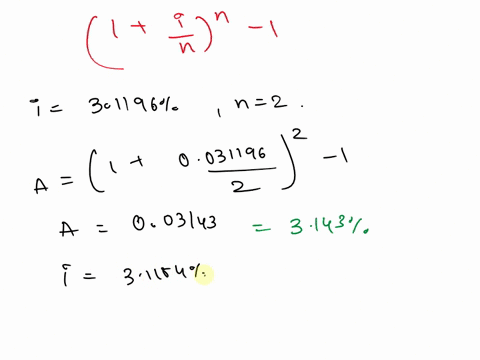 (1 + i/n)^n - 1
i = 3.1196% , n = 2 .
A = (1 + 0.031196/2)^2 - 1
A = 0.03143 = 3.143%.
i = 3.1184%